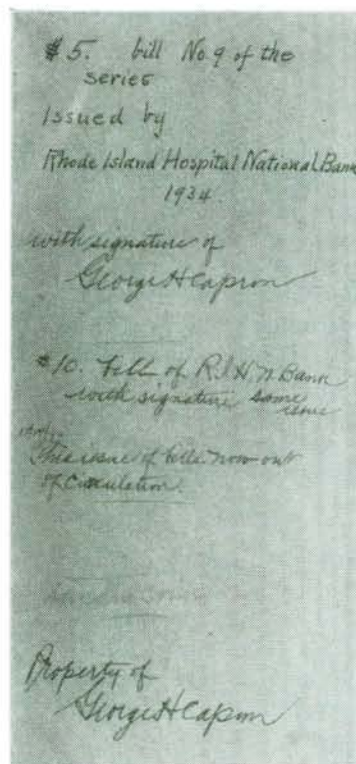 $5. bill No. 9 of the
series
Issued by
Rhode Island Hospital National Bank
1934.
with signature of
George H Capron
$10. bill of R.I.H.N. Bank
with signature same
issue
This issue of bills now out
of Circulation.
Property of
George H Capron